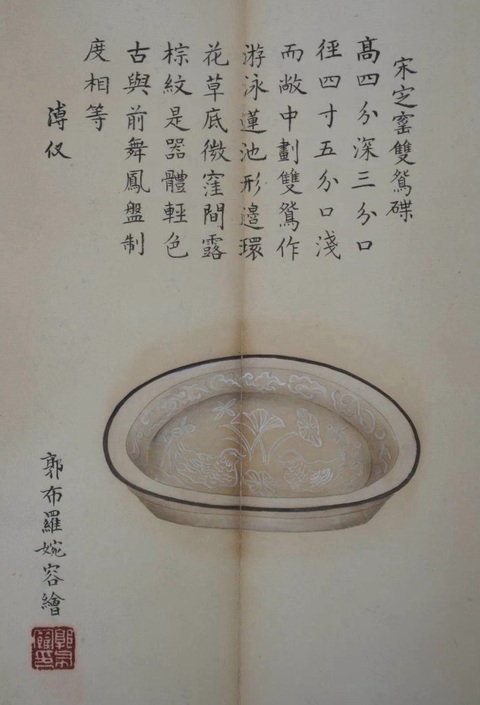 宋定窰雙鴛碟
高四分深三分口
徑四寸五分口淺
而敞中劃雙鴛作
游泳蓮池形邊環
花草底微窪間露
棕紋是器體輕色
古與前舞鳳盤制
度相等
溥仪
郭布羅婉容繪